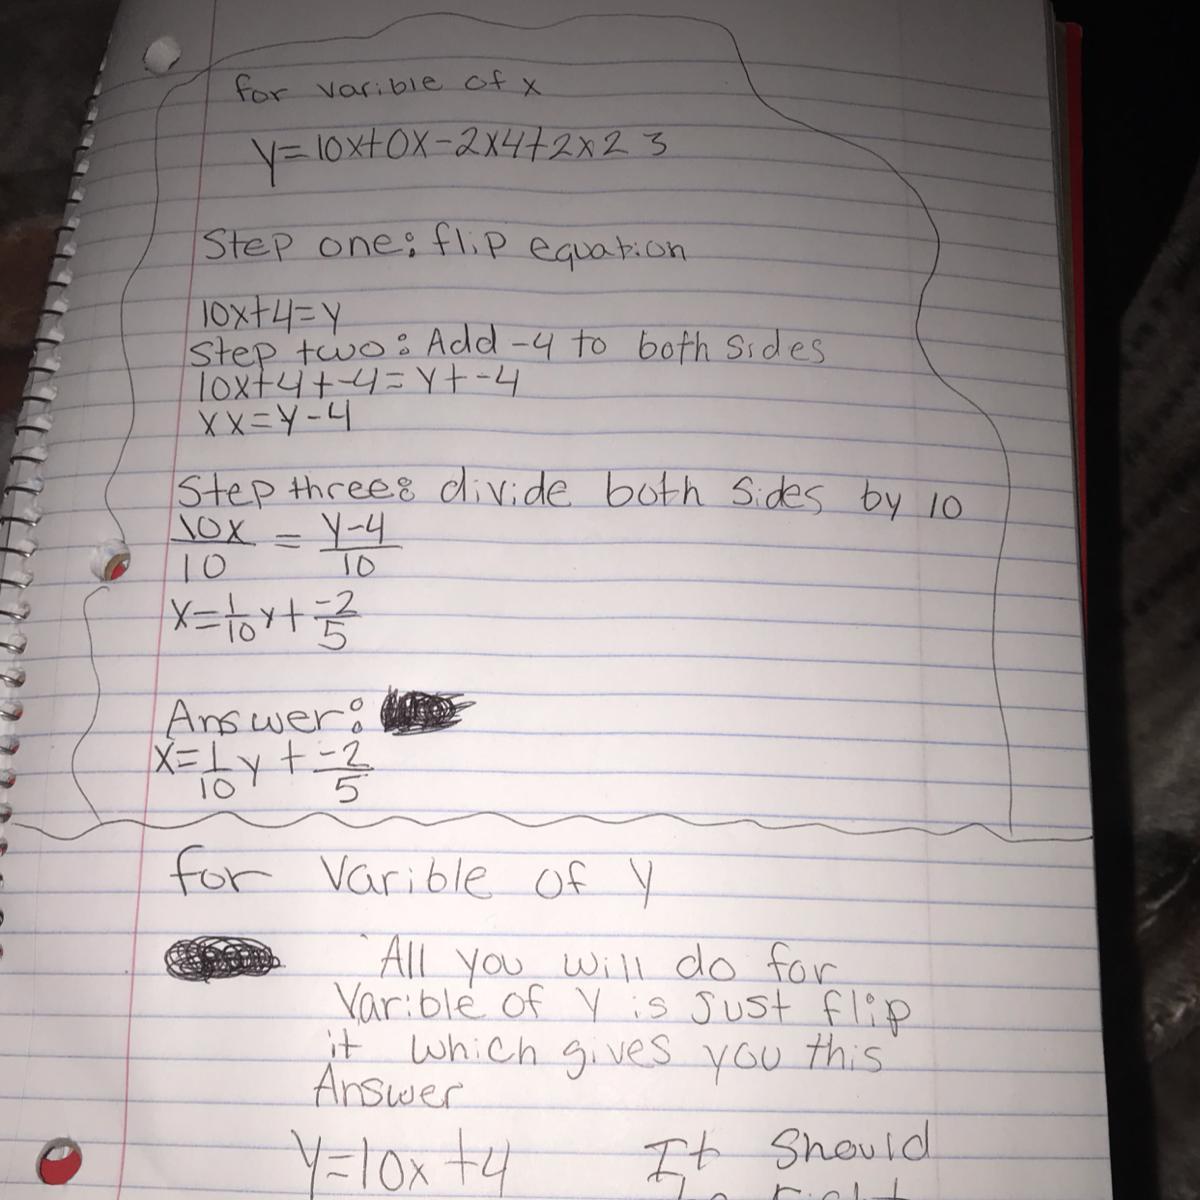 for varible of x
y=10x+0x-2x4+2x2 3
Step one: flip equation
10x+4=y
Step two: Add -4 to both sides
10x+4+-4=y+-4
xx=y-4
Step three: divide both sides by 10
10x/10 = y-4/10
x=1/10y+-2/5
Answer:
x=1/10y+-2/5
for Varible of y
All you will do for
Varible of y is just flip
it which gives you this
Answer
y=10x+4 It should